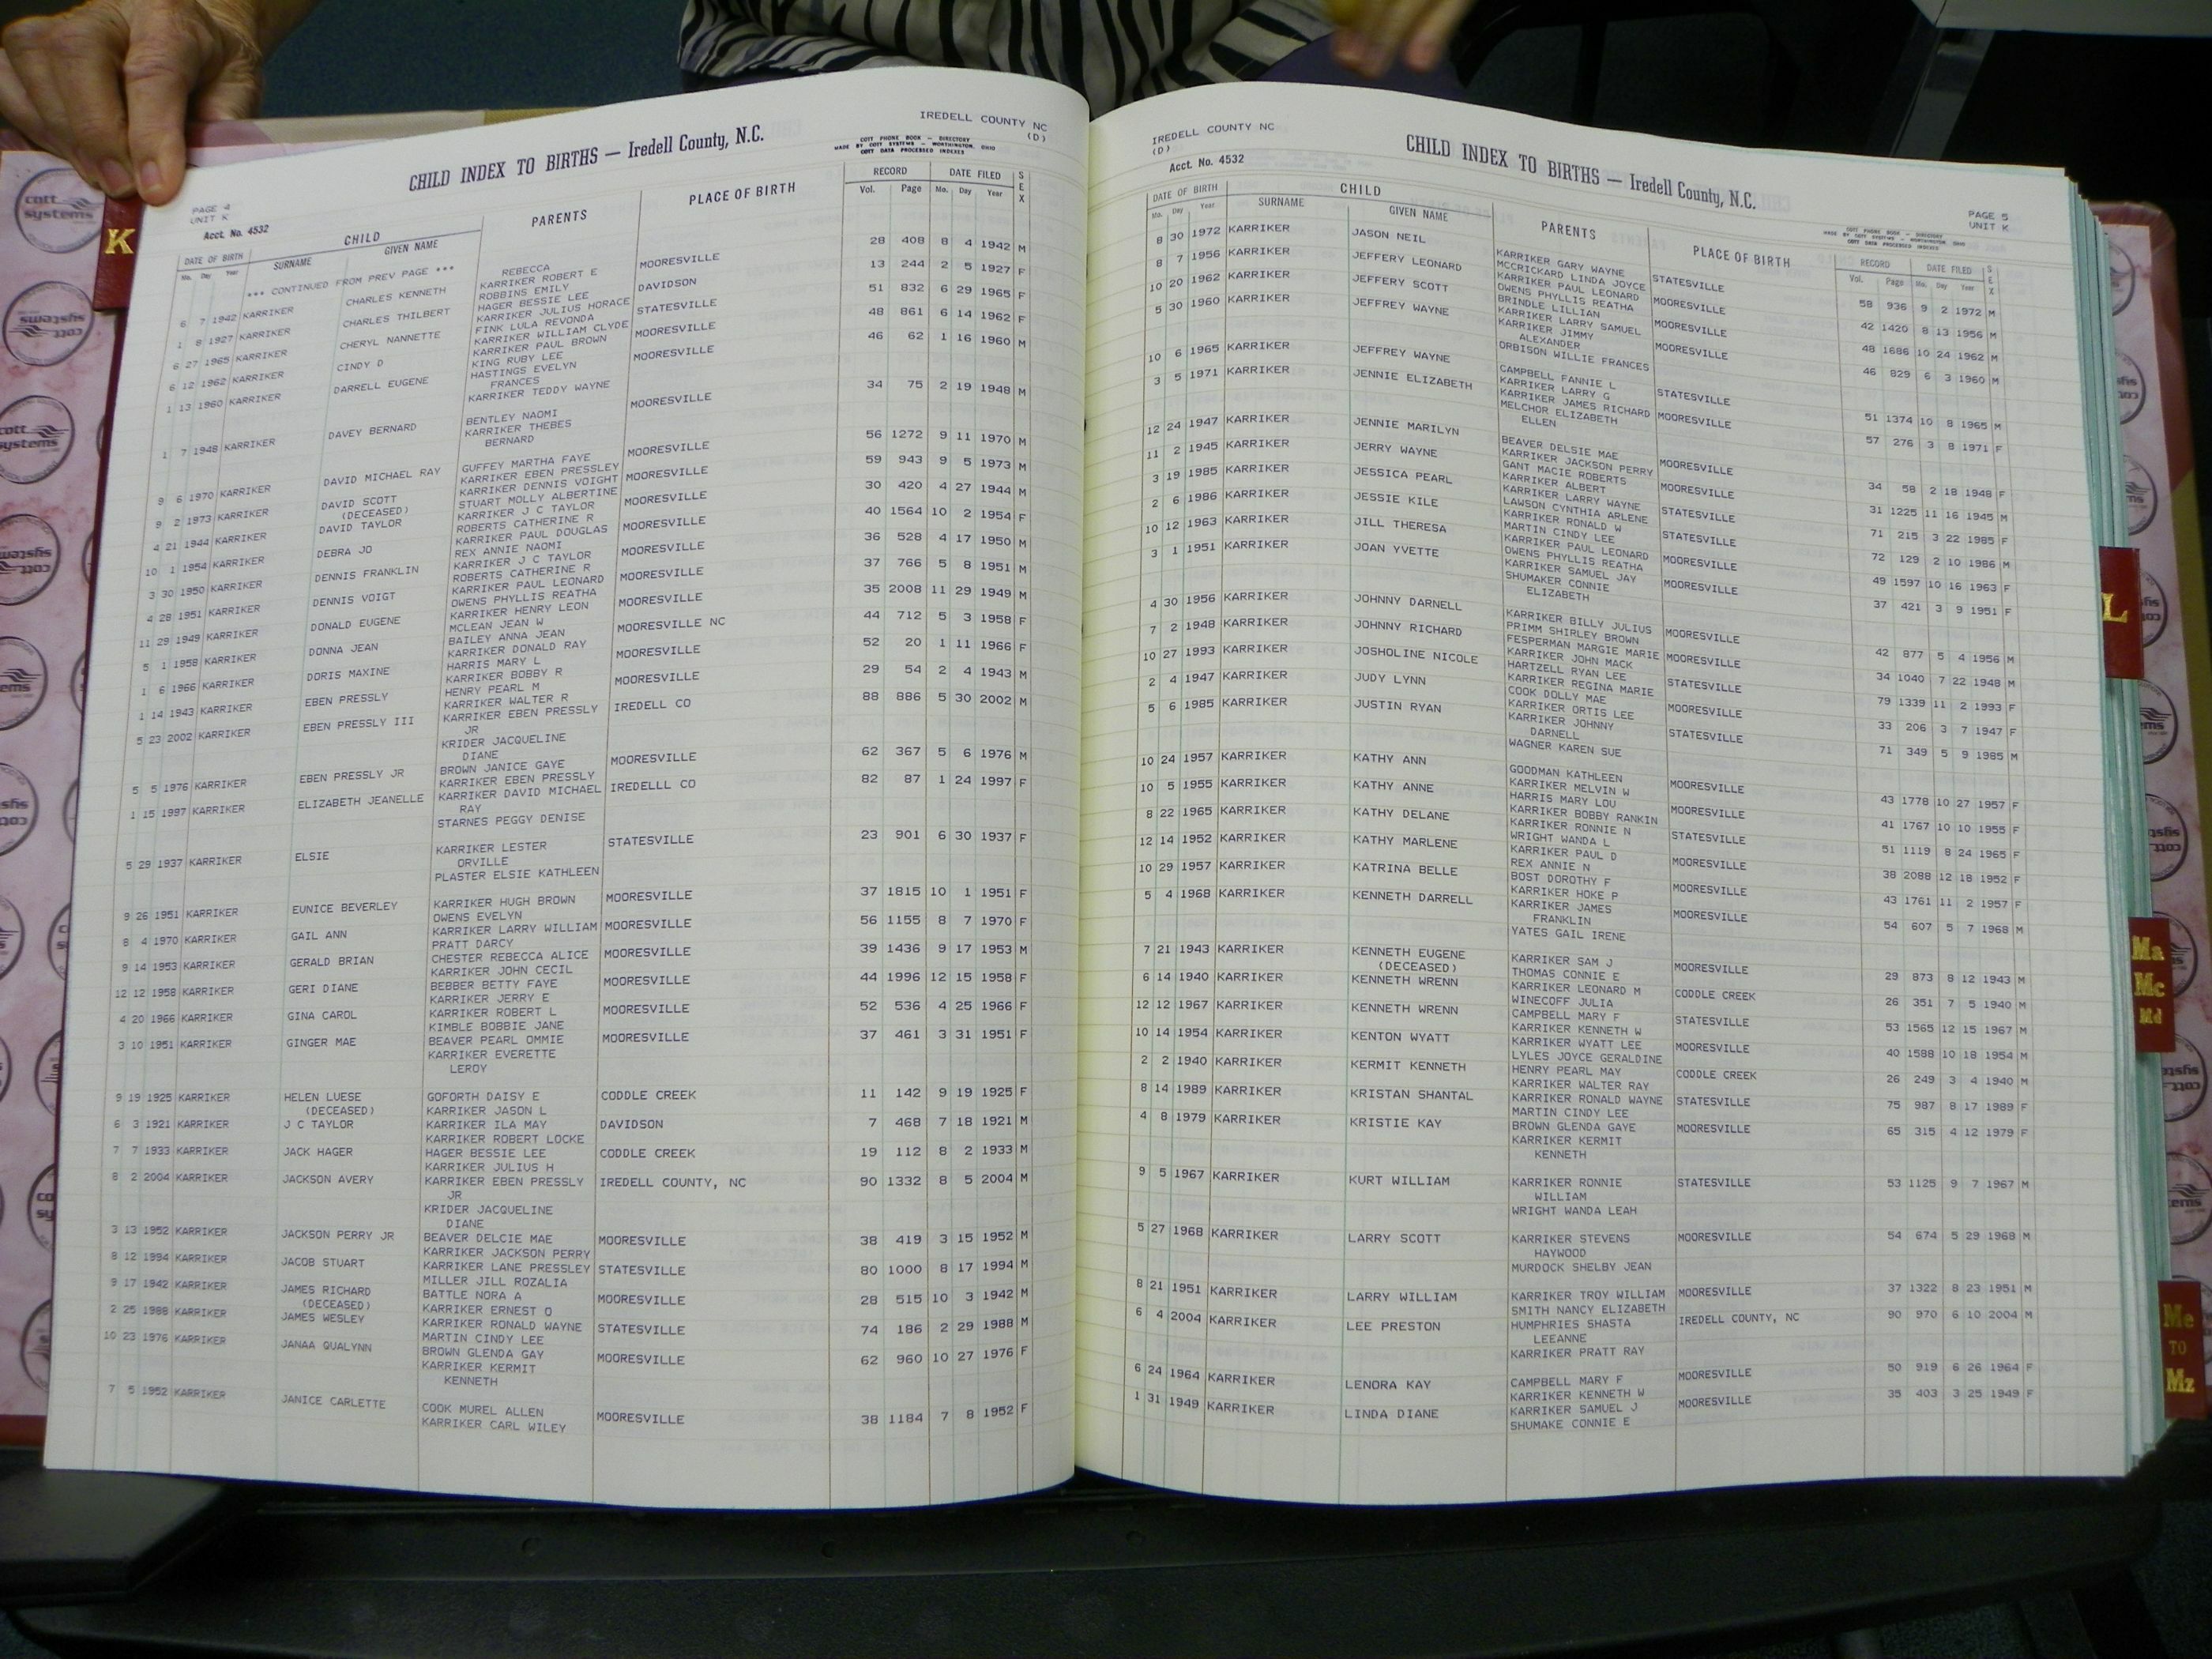 IREDELL COUNTY NC
(D)
CHILD INDEX TO BIRTHS — Iredell County, N.C.
COTT PHONE BOOK — DIRECTORY
MADE BY COTT SYSTEMS — WORTHINGTON, OHIO
COTT DATA PROCESSED INDEXES
PAGE 4
UNIT K
Acct. No. 4532
CHILD PARENTS PLACE OF BIRTH RECORD DATE FILED SEX
DATE OF BIRTH SURNAME GIVEN NAME Vol. Page Mo. Day Year
Mo. Day Year
*** CONTINUED FROM PREV PAGE ***
REBECCA
6 7 1942 KARRIKER CHARLES KENNETH KARRIKER ROBERT E MOORESVILLE 28 408 8 4 1942 M
ROBBINS EMILY
1 8 1927 KARRIKER CHARLES THILBERT HAGER BESSIE LEE DAVIDSON 13 244 2 5 1927 F
KARRIKER JULIUS HORACE
6 27 1965 KARRIKER CHERYL NANNETTE FINK LULA REVONDA STATESVILLE 51 832 6 29 1965 F
KARRIKER WILLIAM CLYDE
6 12 1962 KARRIKER CINDY D KARRIKER PAUL BROWN MOORESVILLE 48 861 6 14 1962 F
KING RUBY LEE
1 13 1960 KARRIKER DARRELL EUGENE HASTINGS EVELYN MOORESVILLE 46 62 1 16 1960 M
FRANCES
KARRIKER TEDDY WAYNE
1 7 1948 KARRIKER DAVEY BERNARD BENTLEY NAOMI MOORESVILLE 34 75 2 19 1948 M
KARRIKER THEBES
BERNARD
9 6 1970 KARRIKER DAVID MICHAEL RAY GUFFEY MARTHA FAYE MOORESVILLE 56 1272 9 11 1970 M
KARRIKER EBEN PRESSLEY
9 2 1973 KARRIKER DAVID SCOTT KARRIKER DENNIS VOIGHT MOORESVILLE 59 943 9 5 1973 M
(DECEASED) STUART MOLLY ALBERTINE
4 21 1944 KARRIKER DAVID TAYLOR KARRIKER J C TAYLOR MOORESVILLE 30 420 4 27 1944 M
ROBERTS CATHERINE R
10 1 1954 KARRIKER DEBRA JO KARRIKER PAUL DOUGLAS MOORESVILLE 40 1564 10 2 1954 F
REX ANNIE NAOMI
3 30 1950 KARRIKER DENNIS FRANKLIN KARRIKER J C TAYLOR MOORESVILLE 36 528 4 17 1950 M
ROBERTS CATHERINE R
4 28 1951 KARRIKER DENNIS VOIGT KARRIKER PAUL LEONARD MOORESVILLE 37 766 5 8 1951 M
OWENS PHYLLIS REATHA
11 29 1949 KARRIKER DONALD EUGENE KARRIKER HENRY LEON MOORESVILLE 35 2008 11 29 1949 M
MCLEAN JEAN W
5 1 1958 KARRIKER DONNA JEAN BAILEY ANNA JEAN MOORESVILLE NC 44 712 5 3 1958 F
KARRIKER DONALD RAY
1 6 1966 KARRIKER DORIS MAXINE HARRIS MARY L MOORESVILLE 52 20 1 11 1966 F
KARRIKER BOBBY R
1 14 1943 KARRIKER EBEN PRESSLY HENRY PEARL M MOORESVILLE 29 54 2 4 1943 M
KARRIKER WALTER R
5 23 2002 KARRIKER EBEN PRESSLY III KARRIKER EBEN PRESSLY IREDELL CO 88 886 5 30 2002 M
JR
KRIDER JACQUELINE
DIANE
5 5 1976 KARRIKER EBEN PRESSLY JR BROWN JANICE GAYE MOORESVILLE 62 367 5 6 1976 M
KARRIKER EBEN PRESSLY
1 15 1997 KARRIKER ELIZABETH JEANELLE KARRIKER DAVID MICHAEL IREDELLL CO 82 87 1 24 1997 F
RAY
STARNES PEGGY DENISE
5 29 1937 KARRIKER ELSIE KARRIKER LESTER STATESVILLE 23 901 6 30 1937 F
ORVILLE
PLASTER ELSIE KATHLEEN
9 26 1951 KARRIKER EUNICE BEVERLEY KARRIKER HUGH BROWN MOORESVILLE 37 1815 10 1 1951 F
OWENS EVELYN
8 4 1970 KARRIKER GAIL ANN KARRIKER LARRY WILLIAM MOORESVILLE 56 1155 8 7 1970 F
PRATT DARCY
9 14 1953 KARRIKER GERALD BRIAN CHESTER REBECCA ALICE MOORESVILLE 39 1436 9 17 1953 M
KARRIKER JOHN CECIL
12 12 1958 KARRIKER GERI DIANE BEBBER BETTY FAYE MOORESVILLE 44 1996 12 15 1958 F
KARRIKER JERRY E
4 20 1966 KARRIKER GINA CAROL KARRIKER ROBERT L MOORESVILLE 52 536 4 25 1966 F
KIMBLE BOBBIE JANE
3 10 1951 KARRIKER GINGER MAE BEAVER PEARL OMMIE MOORESVILLE 37 461 3 31 1951 F
KARRIKER EVERETTE
LEROY
9 19 1925 KARRIKER HELEN LUESE GOFORTH DAISY E CODDLE CREEK 11 142 9 19 1925 F
(DECEASED) KARRIKER JASON L
6 3 1921 KARRIKER J C TAYLOR KARRIKER ILA MAY DAVIDSON 7 468 7 18 1921 M
KARRIKER ROBERT LOCKE
7 7 1933 KARRIKER JACK HAGER HAGER BESSIE LEE CODDLE CREEK 19 112 8 2 1933 M
KARRIKER JULIUS H
8 2 2004 KARRIKER JACKSON AVERY KARRIKER EBEN PRESSLY IREDELL COUNTY, NC 90 1332 8 5 2004 M
JR
KRIDER JACQUELINE
DIANE
3 13 1952 KARRIKER JACKSON PERRY JR BEAVER DELCIE MAE MOORESVILLE 38 419 3 15 1952 M
KARRIKER JACKSON PERRY
8 12 1994 KARRIKER JACOB STUART KARRIKER LANE PRESSLEY STATESVILLE 80 1000 8 17 1994 M
MILLER JILL ROZALIA
9 17 1942 KARRIKER JAMES RICHARD BATTLE NORA A MOORESVILLE 28 515 10 3 1942 M
(DECEASED) KARRIKER ERNEST O
2 25 1988 KARRIKER JAMES WESLEY KARRIKER RONALD WAYNE STATESVILLE 74 186 2 29 1988 M
MARTIN CINDY LEE
10 23 1976 KARRIKER JANAA QUALYNN BROWN GLENDA GAY MOORESVILLE 62 960 10 27 1976 F
KARRIKER KERMIT
KENNETH
7 5 1952 KARRIKER JANICE CARLETTE COOK MUREL ALLEN MOORESVILLE 38 1184 7 8 1952 F
KARRIKER CARL WILEY
IREDELL COUNTY NC
(D)
Acct. No. 4532
CHILD INDEX TO BIRTHS — Iredell County, N.C.
PAGE 5
UNIT K
COTT PHONE BOOK — DIRECTORY
MADE BY COTT SYSTEMS — WORTHINGTON, OHIO
COTT DATA PROCESSED INDEXES
DATE OF BIRTH CHILD PARENTS PLACE OF BIRTH RECORD DATE FILED SEX
Mo. Day Year SURNAME GIVEN NAME Vol. Page Mo. Day Year
8 30 1972 KARRIKER JASON NEIL KARRIKER GARY WAYNE STATESVILLE 58 936 9 2 1972 M
MCCRICKARD LINDA JOYCE
8 7 1956 KARRIKER JEFFERY LEONARD KARRIKER PAUL LEONARD MOORESVILLE 42 1420 8 13 1956 M
OWENS PHYLLIS REATHA
10 20 1962 KARRIKER JEFFERY SCOTT BRINDLE LILLIAN MOORESVILLE 48 1686 10 24 1962 M
KARRIKER LARRY SAMUEL
5 30 1960 KARRIKER JEFFREY WAYNE KARRIKER JIMMY MOORESVILLE 46 829 6 3 1960 M
ALEXANDER
ORBISON WILLIE FRANCES
10 6 1965 KARRIKER JEFFREY WAYNE CAMPBELL FANNIE L STATESVILLE 51 1374 10 8 1965 M
KARRIKER LARRY G
3 5 1971 KARRIKER JENNIE ELIZABETH KARRIKER JAMES RICHARD MOORESVILLE 57 276 3 8 1971 F
MELCHOR ELIZABETH
ELLEN
12 24 1947 KARRIKER JENNIE MARILYN BEAVER DELSIE MAE MOORESVILLE 34 58 2 18 1948 F
KARRIKER JACKSON PERRY
11 2 1945 KARRIKER JERRY WAYNE GANT MACIE ROBERTS MOORESVILLE 31 1225 11 16 1945 M
KARRIKER ALBERT
3 19 1985 KARRIKER JESSICA PEARL KARRIKER LARRY WAYNE STATESVILLE 71 215 3 22 1985 F
LAWSON CYNTHIA ARLENE
2 6 1986 KARRIKER JESSIE KILE KARRIKER RONALD W STATESVILLE 72 129 2 10 1986 M
MARTIN CINDY LEE
10 12 1963 KARRIKER JILL THERESA KARRIKER PAUL LEONARD MOORESVILLE 49 1597 10 16 1963 F
OWENS PHYLLIS REATHA
3 1 1951 KARRIKER JOAN YVETTE KARRIKER SAMUEL JAY MOORESVILLE 37 421 3 9 1951 F
SHUMAKER CONNIE
ELIZABETH
4 30 1956 KARRIKER JOHNNY DARNELL KARRIKER BILLY JULIUS MOORESVILLE 42 877 5 4 1956 M
PRIMM SHIRLEY BROWN
7 2 1948 KARRIKER JOHNNY RICHARD FESPERMAN MARGIE MARIE MOORESVILLE 34 1040 7 22 1948 M
KARRIKER JOHN MACK
10 27 1993 KARRIKER JOSHOLINE NICOLE HARTZELL RYAN LEE STATESVILLE 79 1339 11 2 1993 F
KARRIKER REGINA MARIE
2 4 1947 KARRIKER JUDY LYNN COOK DOLLY MAE MOORESVILLE 33 206 3 7 1947 F
KARRIKER ORTIS LEE
5 6 1985 KARRIKER JUSTIN RYAN KARRIKER JOHNNY STATESVILLE 71 349 5 9 1985 M
DARNELL
WAGNER KAREN SUE
10 24 1957 KARRIKER KATHY ANN GOODMAN KATHLEEN MOORESVILLE 43 1778 10 27 1957 F
KARRIKER MELVIN W
10 5 1955 KARRIKER KATHY ANNE HARRIS MARY LOU MOORESVILLE 41 1767 10 10 1955 F
KARRIKER BOBBY RANKIN
8 22 1965 KARRIKER KATHY DELANE KARRIKER RONNIE N STATESVILLE 51 1119 8 24 1965 F
WRIGHT WANDA L
12 14 1952 KARRIKER KATHY MARLENE KARRIKER PAUL D MOORESVILLE 38 2088 12 18 1952 F
REX ANNIE N
10 29 1957 KARRIKER KATRINA BELLE BOST DOROTHY F MOORESVILLE 43 1761 11 2 1957 F
KARRIKER HOKE P
5 4 1968 KARRIKER KENNETH DARRELL KARRIKER JAMES MOORESVILLE 54 607 5 7 1968 M
FRANKLIN
YATES GAIL IRENE
7 21 1943 KARRIKER KENNETH EUGENE KARRIKER SAM J MOORESVILLE 29 873 8 12 1943 M
(DECEASED) THOMAS CONNIE E
6 14 1940 KARRIKER KENNETH WRENN KARRIKER LEONARD M CODDLE CREEK 26 351 7 5 1940 M
WINECOFF JULIA
12 12 1967 KARRIKER KENNETH WRENN CAMPBELL MARY F STATESVILLE 53 1565 12 15 1967 M
KARRIKER KENNETH W
10 14 1954 KARRIKER KENTON WYATT KARRIKER WYATT LEE MOORESVILLE 40 1588 10 18 1954 M
LYLES JOYCE GERALDINE
2 2 1940 KARRIKER KERMIT KENNETH HENRY PEARL MAY CODDLE CREEK 26 249 3 4 1940 M
KARRIKER WALTER RAY
8 14 1989 KARRIKER KRISTAN SHANTAL KARRIKER RONALD WAYNE STATESVILLE 75 987 8 17 1989 F
MARTIN CINDY LEE
4 8 1979 KARRIKER KRISTIE KAY BROWN GLENDA GAYE MOORESVILLE 65 315 4 12 1979 F
KARRIKER KERMIT
KENNETH
9 5 1967 KARRIKER KURT WILLIAM KARRIKER RONNIE STATESVILLE 53 1125 9 7 1967 M
WILLIAM
WRIGHT WANDA LEAH
5 27 1968 KARRIKER LARRY SCOTT KARRIKER STEVENS MOORESVILLE 54 674 5 29 1968 M
HAYWOOD
MURDOCK SHELBY JEAN
8 21 1951 KARRIKER LARRY WILLIAM KARRIKER TROY WILLIAM MOORESVILLE 37 1322 8 23 1951 M
SMITH NANCY ELIZABETH
6 4 2004 KARRIKER LEE PRESTON HUMPHRIES SHASTA IREDELL COUNTY, NC 90 970 6 10 2004 M
LEEANNE
KARRIKER PRATT RAY
6 24 1964 KARRIKER LENORA KAY CAMPBELL MARY F MOORESVILLE 50 919 6 26 1964 F
KARRIKER KENNETH W
1 31 1949 KARRIKER LINDA DIANE KARRIKER SAMUEL J MOORESVILLE 35 403 3 25 1949 F
SHUMAKE CONNIE E
K
L
Ma
Mc
Md
Me
TO
Mz
cott
systems